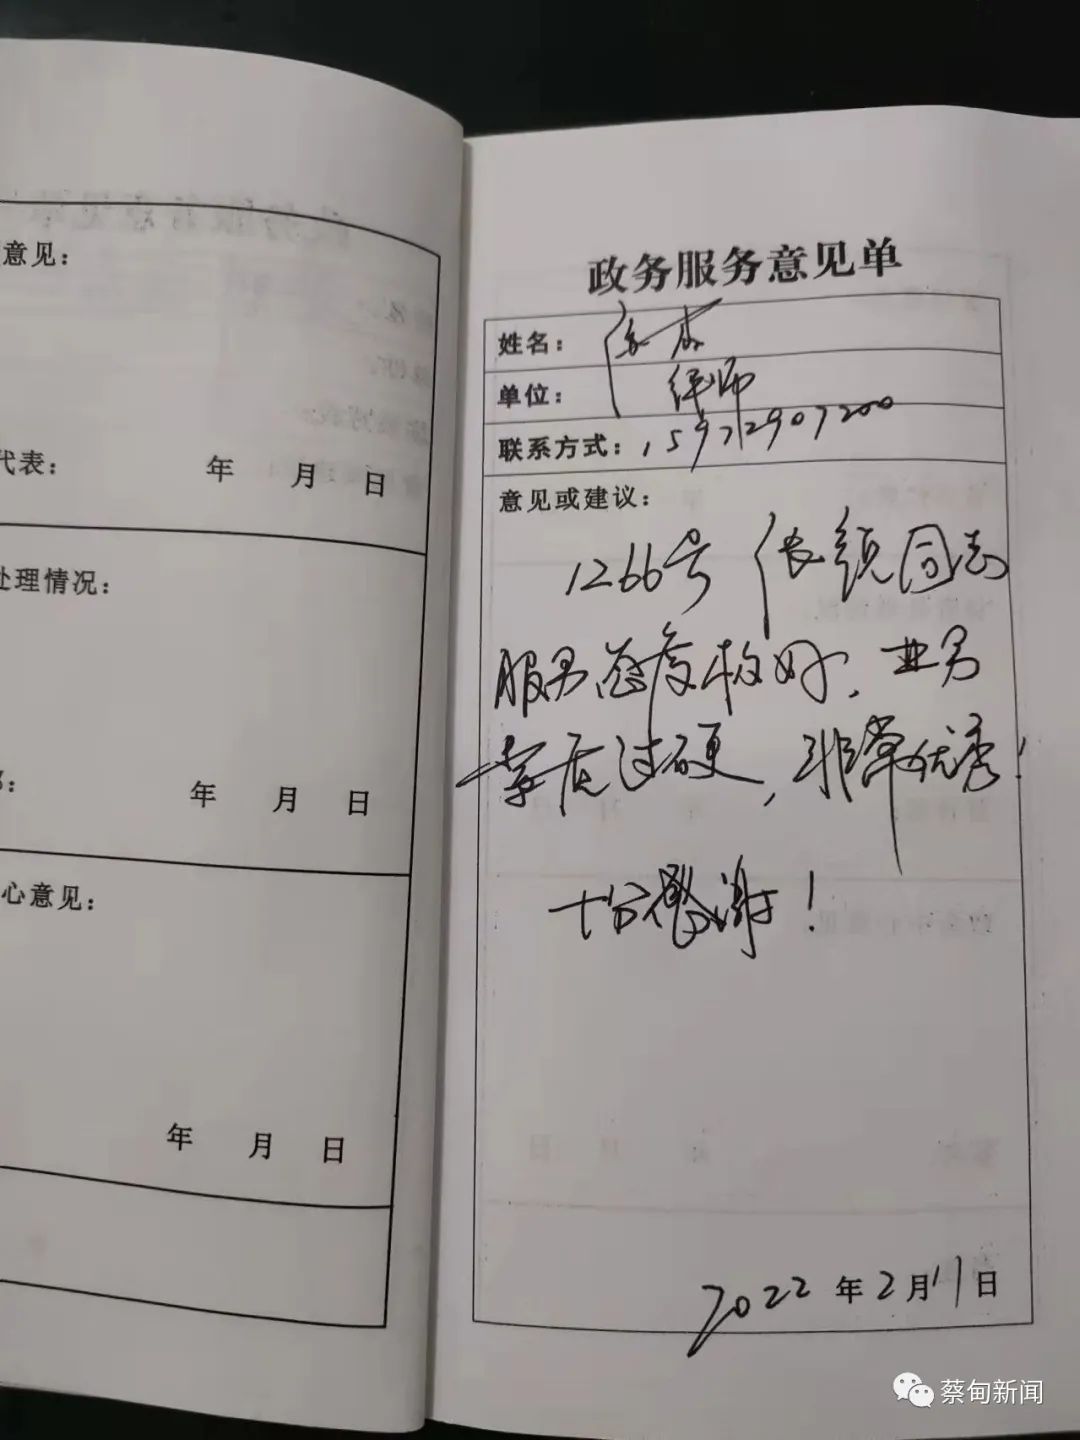 意见：
代表：
年 月 日
处理情况：
年 月 日
心意见：
年 月 日
政务服务意见单
姓名：
单位：律师
联系方式：15972907200
意见或建议：
1266号 张颖同志
服务态度极好、业务
素质过硬，非常优秀！
十分感谢！
2022年2月11日
蔡甸新闻